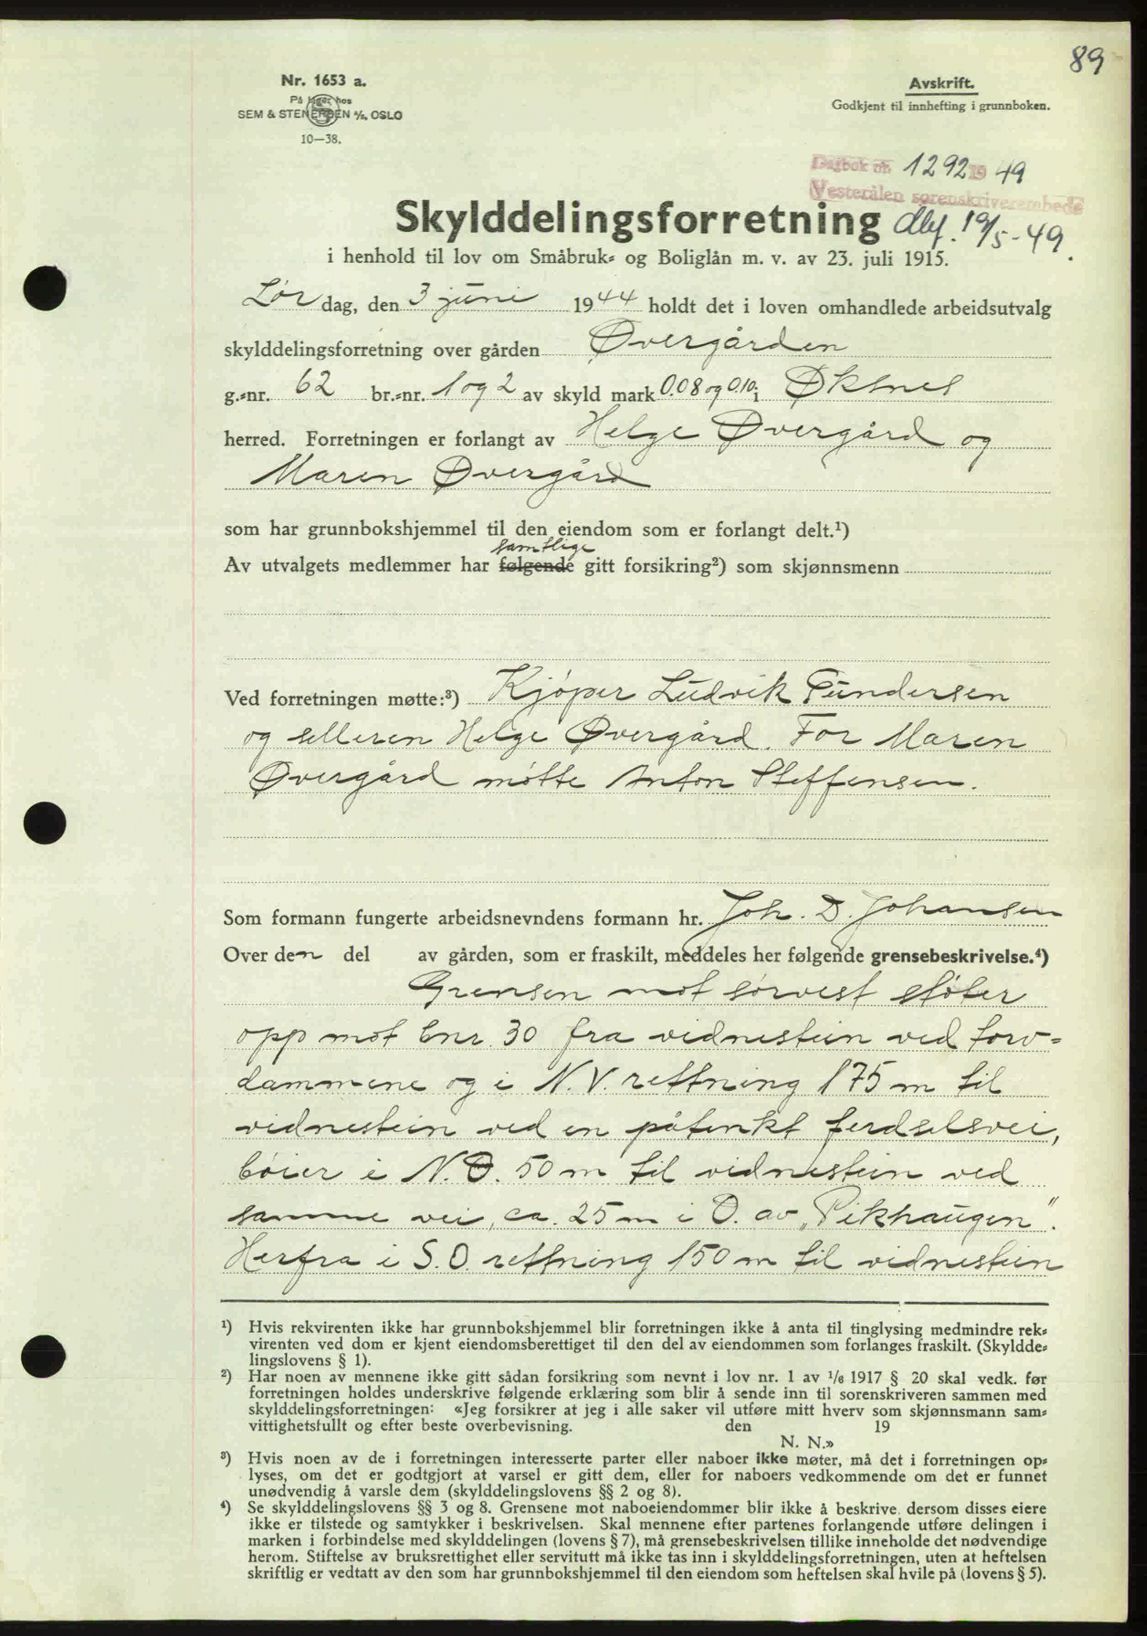 89
Nr. 1653 a.
På lager hos
SEM & STENERSEN A/S, OSLO
10—38.
Avskrift.
Godkjent til innhefting i grunnboken.
Dagbok nr. 1292 19 49
Vesterålen sorenskriverembede
Skylddelingsforretning dbf. 19/5-49.
i henhold til lov om Småbruk- og Boliglån m. v. av 23. juli 1915.
Lørdag, den 3 juni 1944 holdt det i loven omhandlede arbeidsutvalg
skylddelingsforretning over gården Øvergården
g.-nr. 62 br.-nr. 1 og 2 av skyld mark 0.08 og 0.10 i Øksnes
herred. Forretningen er forlangt av Helge Øvergård og
Maren Øvergård
som har grunnbokshjemmel til den eiendom som er forlangt delt.¹)
samtlige
Av utvalgets medlemmer har følgende gitt forsikring²) som skjønnsmenn
Ved forretningen møtte:³) Kjøper Ludvik Gundersen
og selleren Helge Øvergård. For Maren
Øvergård møtte Anton Steffensen.
Som formann fungerte arbeidsnevndens formann hr. Joh. D. Johansen
Over den del av gården, som er fraskilt, meddeles her følgende grensebeskrivelse.⁴)
Grensen mot sørvest støter
opp mot bnr. 30 fra vidnestein ved torv-
dammene og i N.V. rettning 175 m til
vidnestein ved en påtenkt ferdselsvei,
bøier i N.O. 50 m til vidnestein ved
samme vei, ca. 25 m i O. av „Pikhaugen".
Herfra i S.O. rettning 150 m til vidnestein
¹) Hvis rekvirenten ikke har grunnbokshjemmel blir forretningen ikke å anta til tinglysing medmindre rek-
virenten ved dom er kjent eiendomsberettiget til den del av eiendommen som forlanges fraskilt. (Skyldde-
lingslovens § 1).
²) Har noen av mennene ikke gitt sådan forsikring som nevnt i lov nr. 1 av 1/6 1917 § 20 skal vedk. før
forretningen holdes underskrive følgende erklæring som blir å sende inn til sorenskriveren sammen med
skylddelingsforretningen: «Jeg forsikrer at jeg i alle saker vil utføre mitt hverv som skjønnsmann sam-
vittighetsfullt og efter beste overbevisning. den 19
N. N.»
³) Hvis noen av de i forretningen interesserte parter eller naboer ikke møter, må det i forretningen op-
lyses, om det er godtgjort at varsel er gitt dem, eller for naboers vedkommende om det er funnet
unødvendig å varsle dem (skylddelingslovens §§ 2 og 8).
⁴) Se skylddelingslovens §§ 3 og 8. Grensene mot naboeiendommer blir ikke å beskrive, dersom disses eiere
ikke er tilstede og samtykker i beskrivelsen. Skal mennene efter partenes forlangende utføre delingen i
marken i forbindelse med skylddelingen (lovens § 7), må grensebeskrivelsen tillike inneholde det nødvendige
herom. Stiftelse av bruksrettighet eller servitutt må ikke tas inn i skylddelingsforretningen, uten at heftelsen
skriftlig er vedtatt av den som har grunnbokshjemmel til den eiendom som heftelsen skal hvile på (lovens § 5).